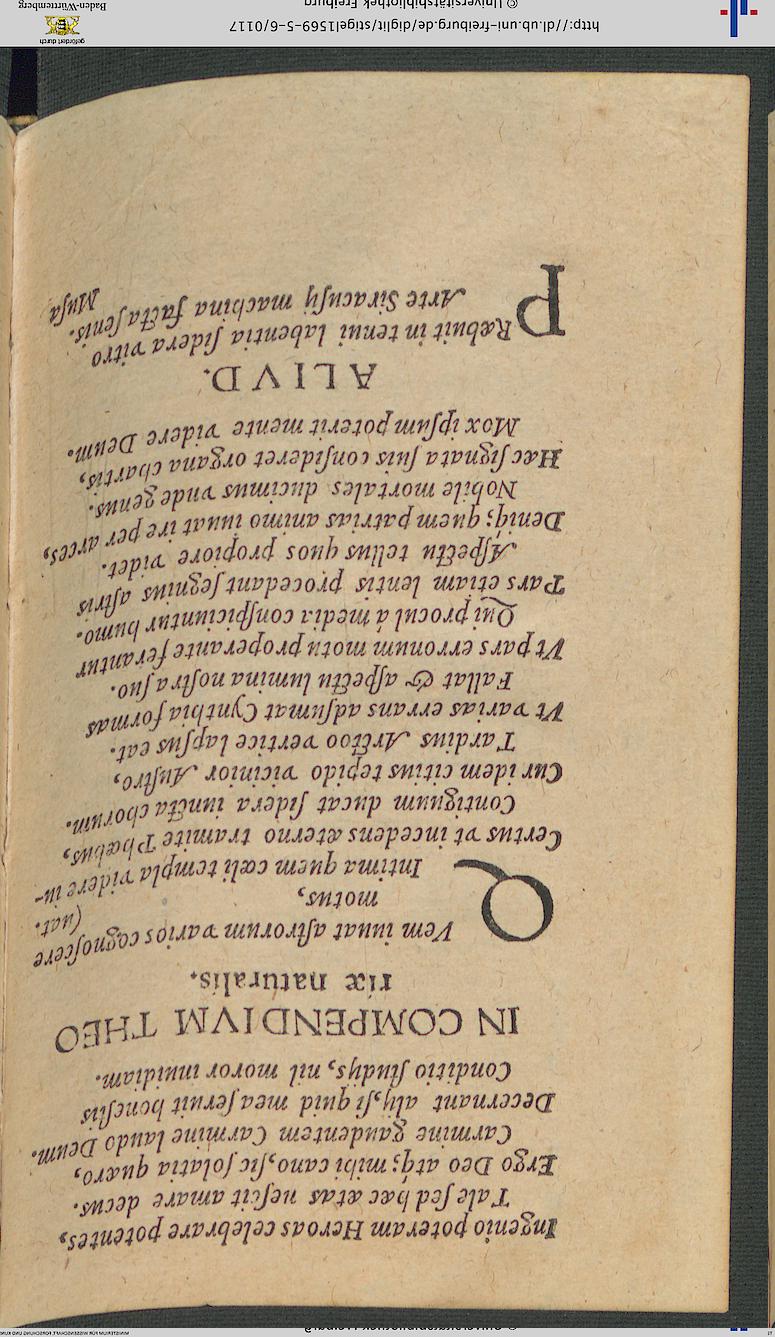 Ingenio poteram Heroas celebrare potentes,
Tale sed hæc ætas nescit amare decus.
Ergo Deo atq; mihi cano, sic solatia quæro,
Carmine gaudentem Carmine laudo Deum.
Decernant alij, si quid mea seruit honestis
Conditio studijs, nil moror inuidiam.
IN COMPENDIVM THEO
riæ naturalis.
QVem iuuat astrorum varios cognoscere
motus, (uat.
Intima quem cœli templa videre iu-
Certus vt incedens æterno tramite Phœbus,
Contiguum ducat sidera iuncta chorum.
Cur idem citius tepido vicinior Austro,
Tardius Arctoo vertice lapsus eat.
Vt varias errans adsumat Cynthia formas
Fallat & aspectu lumina nostra suo.
Vt pars erronum motu properante ferantur
Qui procul á media conspiciuntur humo.
Pars etiam lentis procedant segnius astris
Aspectu tellus quos propiore videt.
Deniq; quem patrias animo iuuat ire per arces,
Nobile mortales ducimus vnde genus.
Hæc signata suis consideret organa chartis,
Mox ipsum poterit mente videre Deum.
ALIVD.
PRæbuit in tenui labentia sidera vitro
Arte Siracusij machina facta senis.
Musa
http://dl.ub.uni-freiburg.de/diglit/stigel1569-5-6/0117
© Universitätsbibliothek Freiburg
gefördert durch
Baden-Württemberg
MINISTERIUM FÜR WISSENSCHAFT, FORSCHUNG UND KUNST